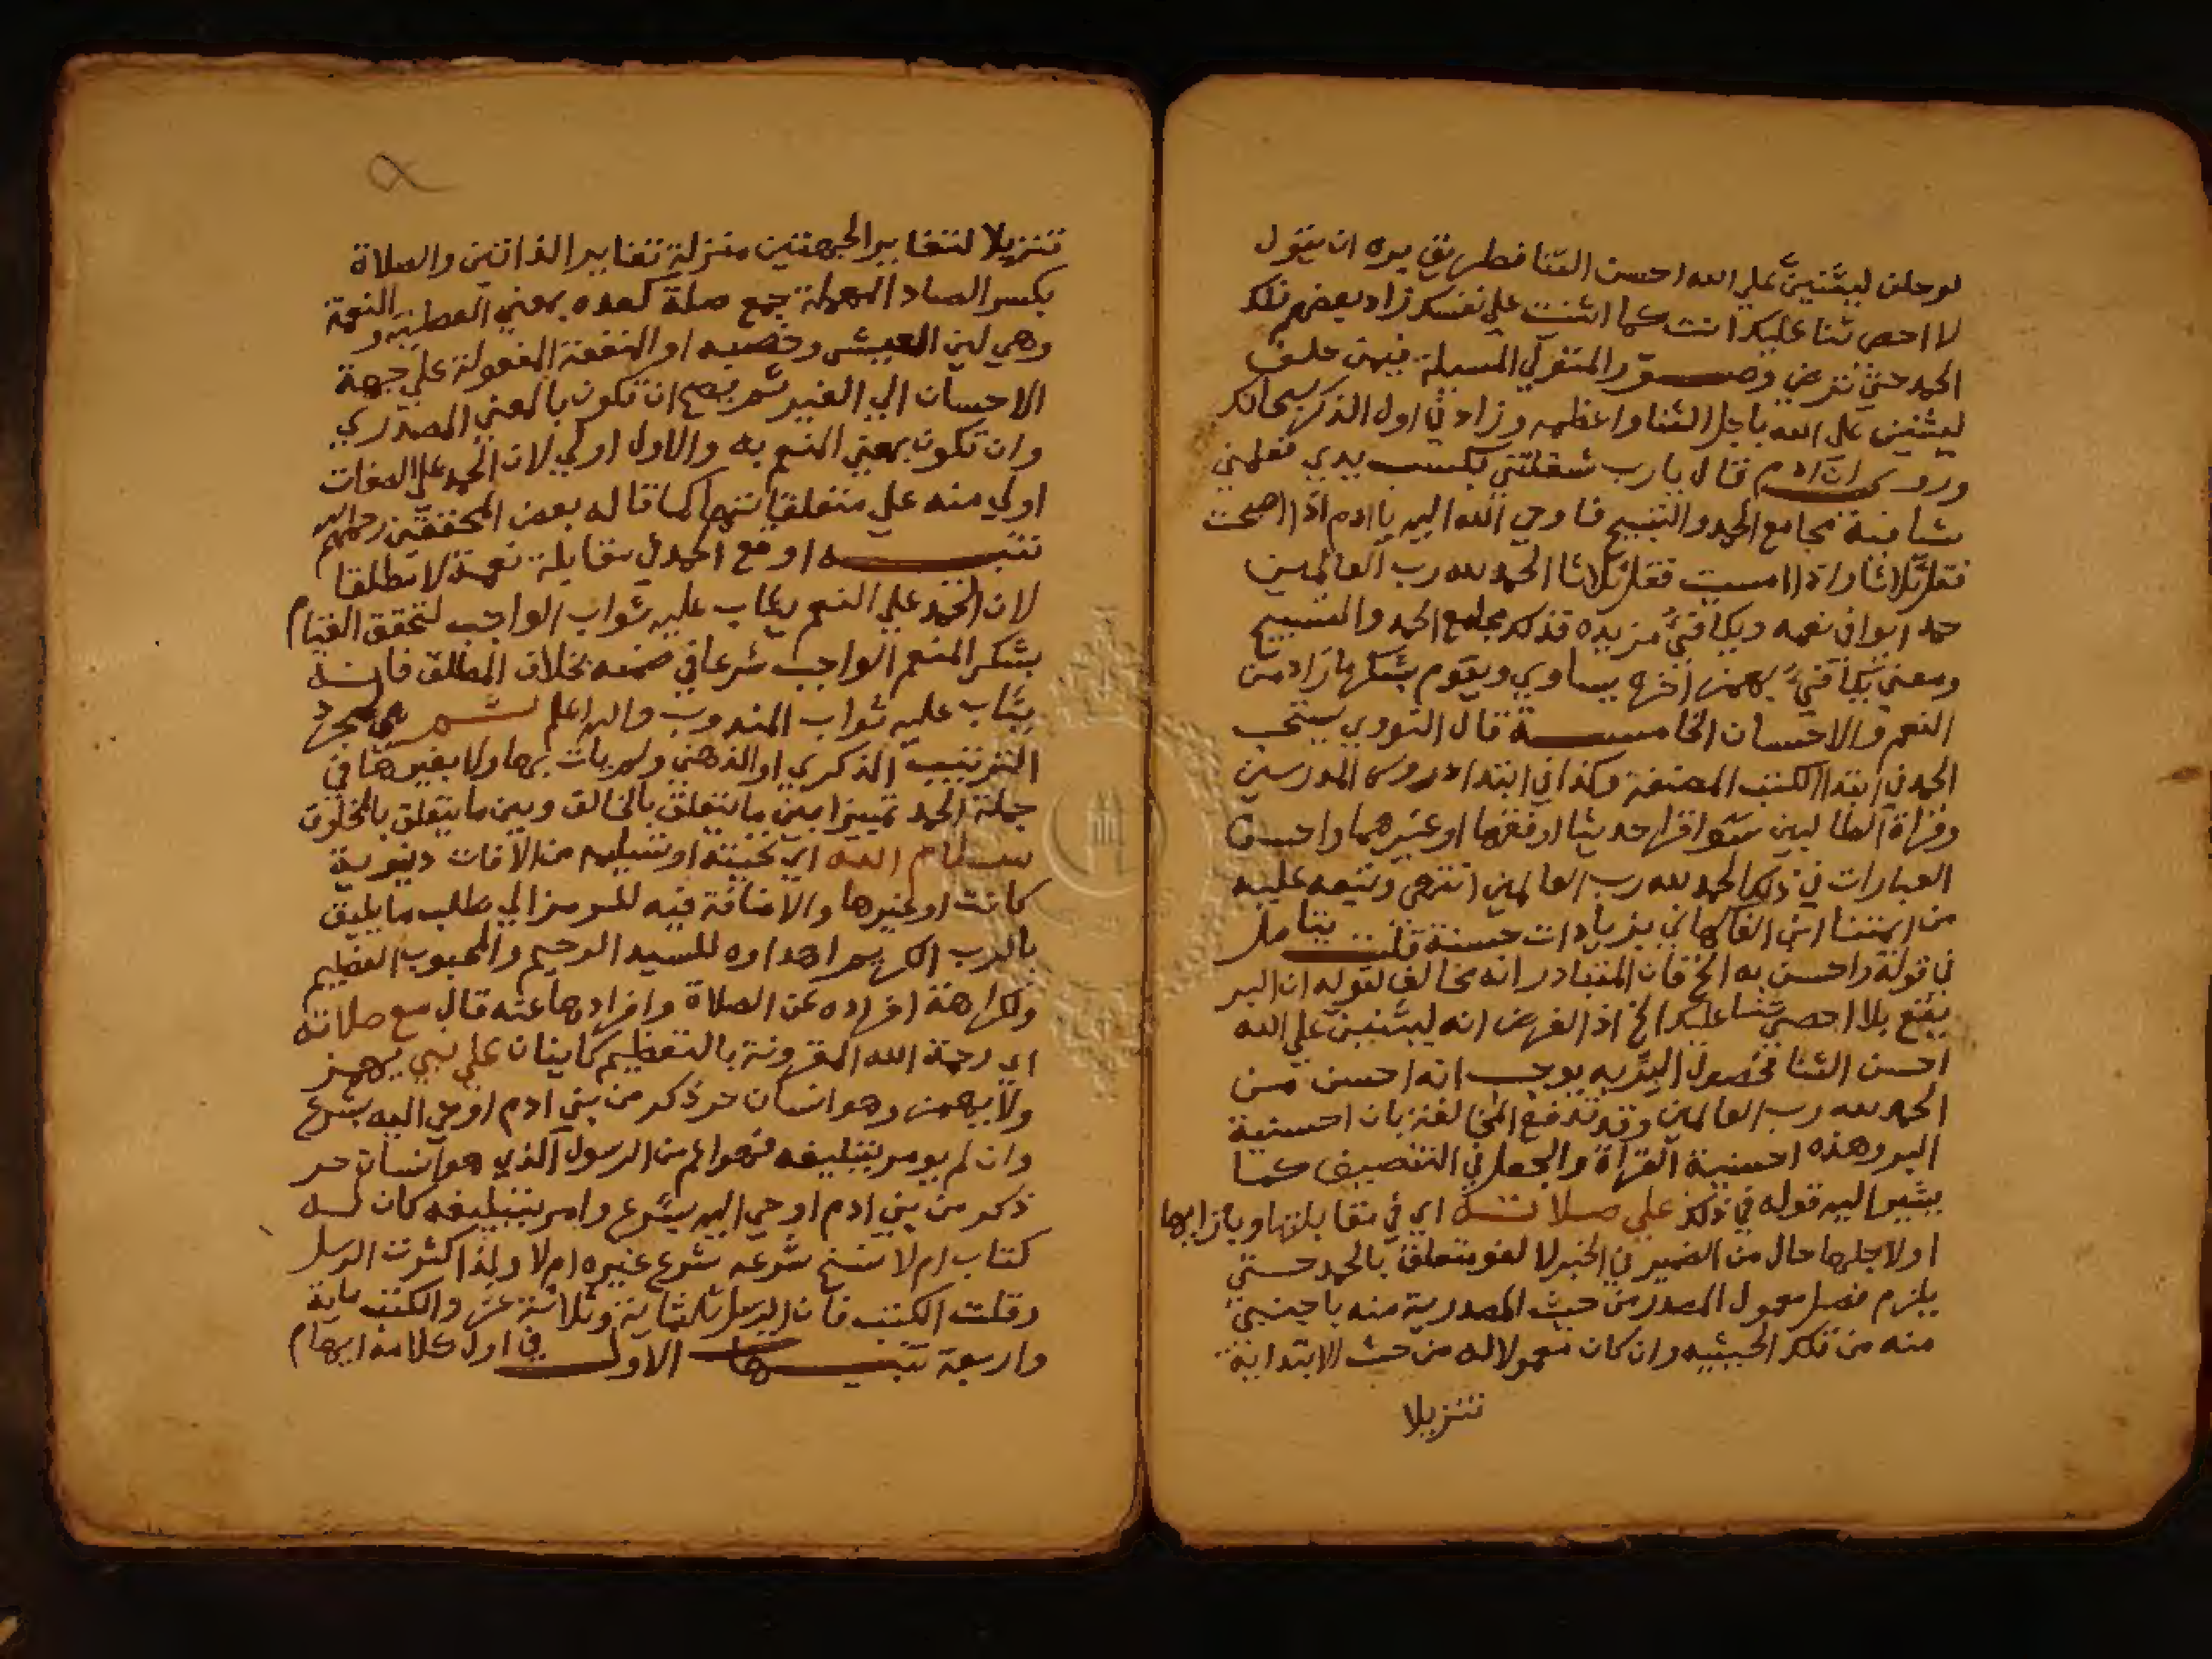 لو حلف ليثنين علي الله احسن الثنا فطريق بره ان يقول
لا احصي ثنا عليك انت كما اثنيت علي نفسك زاد بعضهم فلك
الحمد حتي ترضي وصور المتولي المسيلة فيمن حلف
ليثنين علي الله باجل الثنا واعظمه وزاد في اول الذكر سبحانك
وروي ان ادم قال يا رب شغلتني بكسب يدي فعلمني
شيا فيه مجامع الحمد والتسبيح فاوحي الله اليه يا ادم اذا اصبحت
فقل ثلاثا واذا امسيت فقل ثلاثا الحمد لله رب العالمين
حمدا يوافي نعمه ويكافئ مزيده فذلك مجامع الحمد والتسبيح
ومعني يكافئ بهمز اخره يساوي ويقوم بشكر ما زاد من
النعم والاحسان الخامسة قال النووي يستحب
الحمد في ابتدا الكتب المصنفة وكذا في ابتدا دروس المدرسين
وقراة الطالبين سوا قرا حديثا او فقها او غيرهما واحسن
العبارات في ذلك الحمد لله رب العالمين انتهي وتبعه عليه
من ايمتنا الفاكهاني بزيادات حسنة قلت يتامل
في قوله واحسن به الخ فان المتبادر انه مخالف لقوله ان البر
يقع بلا احصي ثنا عليك الخ اذ الغرض انه ليثنين علي الله
احسن الثنا فحصول البر به يوجب انه احسن من
الحمد لله رب العالمين وقد تدفع المخالفة بان احسنية
البر وهذه احسنية القراة والجعل في التصنيف كما
يشير اليه قوله في ذلك علي صلاته اي في مقابلتها وبازايها
او لاجلها حال من الضمير في الخبر لا لغو متعلق بالحمد حتي
يلزم فصل معمول المصدر من حيث المصدرية منه باجنبي
منه من تلك الحيثيه وان كان معمولا له من حيث الابتدايية
تنزيلا
تنزيلا لتغاير الجهتين منزلة تغاير الذاتين والصلاة
بكسر الصاد المهملة جمع صلة كعده بمعني العطية والنعمة
وهي لين العيش وخصبه او المنفعة المفعولة علي جهة
الاحسان الي الغير ثم يصح ان تكون بالمعني المصدري
وان تكون بمعني المنعم به والاول اولي لان الحمد علي الصفات
اولي منه علي متعلقاتها كما قاله بعض المحققين رحمهم الله
تنبيه اوقع الحمد في مقابلة نعمة لا مطلقا
لان الحمد علي النعم يثاب عليه ثواب الواجب لتحقق القيام
بشكر المنعم الواجب شرعا في ضمنه بخلاف المطلق فانه
يثاب عليه ثواب المندوب والله اعلم ثم هي لمجرد
الترتيب الذكري او الذهني ولم يات بها ولا بغيرها في
جملة الحمد تمييزا بين ما يتعلق بالخالق وبين ما يتعلق بالمخلوق
سلام الله اي تحيته او تسليمه من الافات دنيوية
كانت او غيرها والاضافة فيه للرمز الي طلب ما يليق
بالرب الكريم اهداوه للسيد الرحيم والمحبوب العظيم
ولكراهة افراده عن الصلاة وافرادها عنه قال مع صلاته
اي رحمة الله المقرونة بالتعظيم كاينان علي نبي يهمز
ولا يهمز وهو انسان حر ذكر من بني ادم اوحي اليه بشرع
وان لم يومر بتبليغه فهو اعم من الرسول الذي هو انسان حر
ذكر من بني ادم اوحي اليه بشرع وامر بتبليغه كان له
كتاب ام لا نسخ شرعه شرع غيره ام لا ولذا كثرت الرسل
وقلت الكتب فان الرسل ثلثماية وثلاثة عشر والكتب ماية
واربعة تنبيهات الاول في اول كلامه ابهام